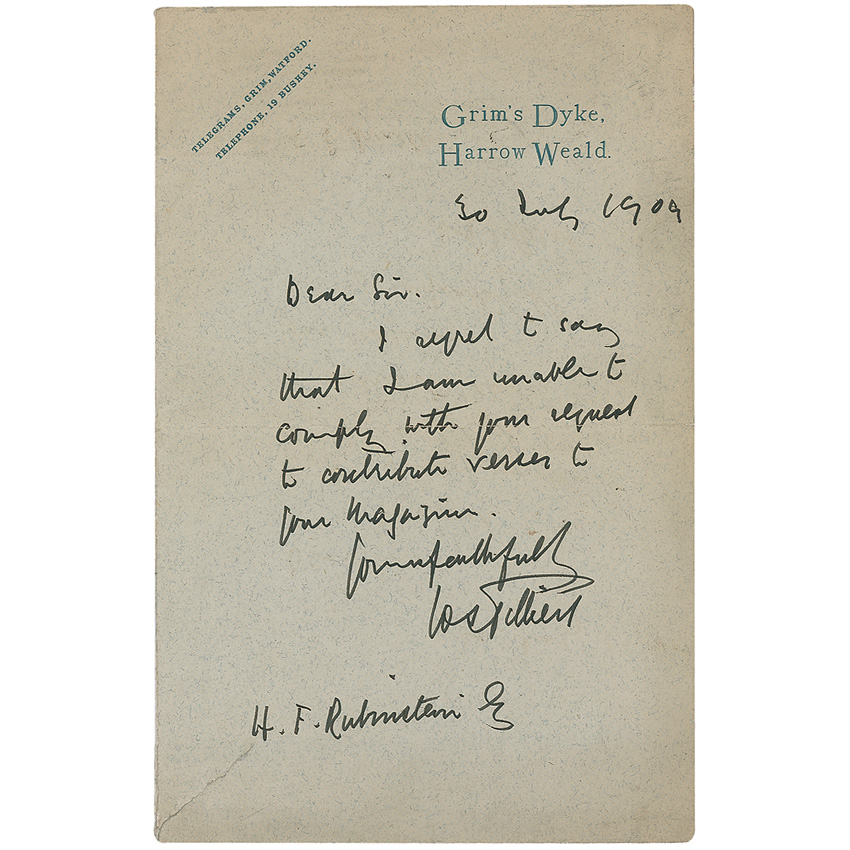 TELEGRAMS, GRIM, WATFORD.
TELEPHONE, 19 BUSHEY.
Grim's Dyke,
Harrow Weald.
30 July 1909
Dear Sir.
I regret to say
that I am unable to
comply with your request
to contribute verses to
your Magazine.
Yours faithfully
WS Gilbert
H. F. Rubinstein Esq